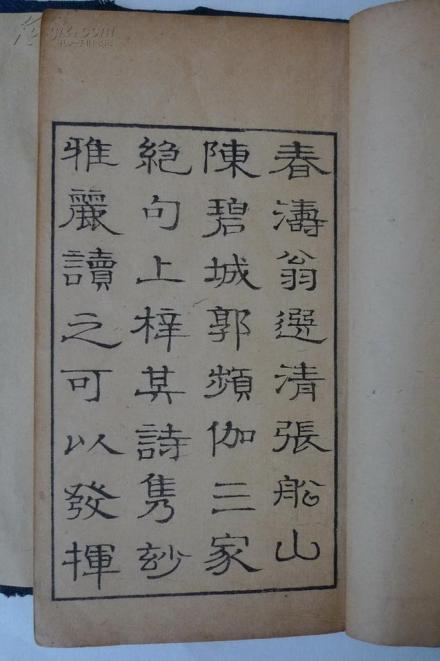 春濤翁選清張船山
陳碧城郭頻伽三家
絶句上梓其詩雋玅
雅麗讀之可以發揮